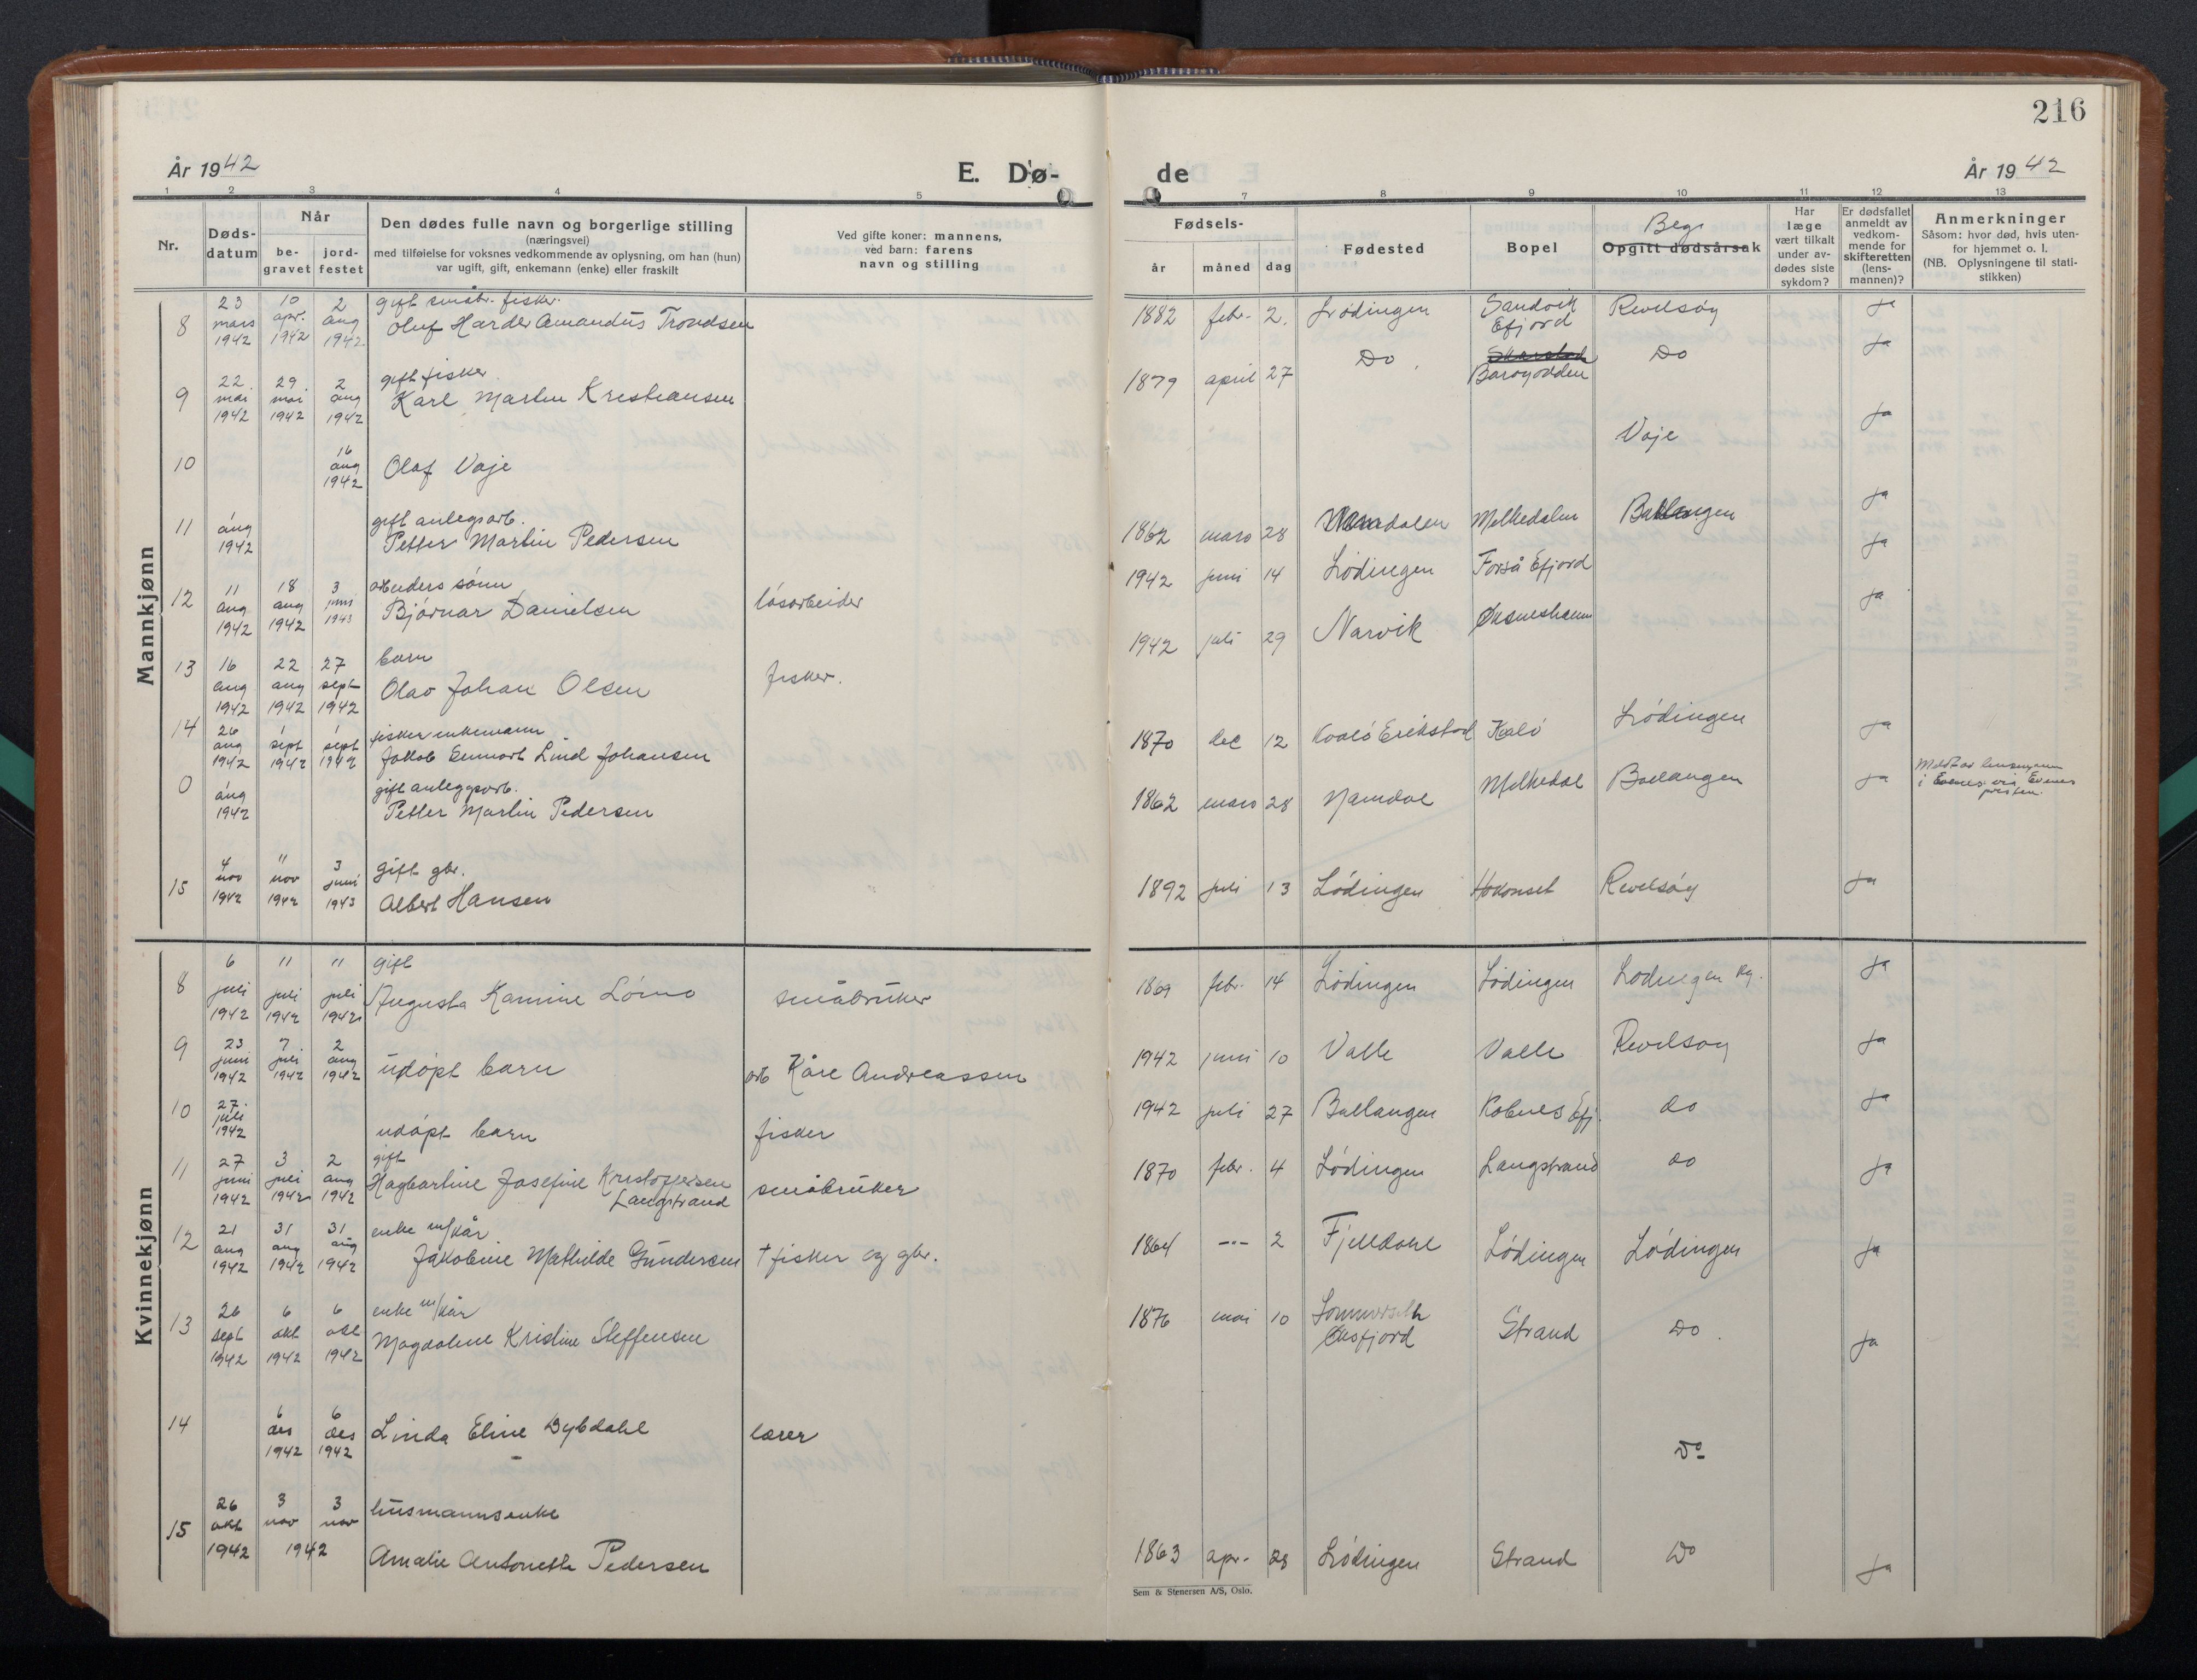 216
År 1942
E. Dø-
de
År 1942
1 2 3 4 5 7 8 9 10 11 12 13
Nr.
Døds-
datum
Når
be-
gravet
jord-
festet
Den dødes fulle navn og borgerlige stilling
(næringsvei)
med tilføielse for voksnes vedkommende av oplysning, om han (hun)
var ugift, gift, enkemann (enke) eller fraskilt
Ved gifte koner: mannens,
ved barn: farens
navn og stilling
Fødsels-
år måned dag
Fødested
Bopel
Begr
Opgitt dødsårsak
Har
læge
vært tilkalt
under av-
dødes siste
sykdom?
Er dødsfallet
anmeldt av
vedkom-
mende for
skifteretten
(lens-
mannen)?
Anmerkninger
Såsom: hvor død, hvis uten-
for hjemmet o. l.
(NB. Oplysningene til stati-
stikken)
Mannkjønn
8 23 mars 1942 10 apr. 1942 2 aug 1942 gift småbr. fisker.
Oluf Harder Amandus Trondsen 1882 febr. 2. Lødingen Sandvik Efjord Revelsøy ja
9 22. mai 1942 29. mai 1942 2 aug 1942 gift fisker
Karl Martin Kristiansen 1879 april 27 Do Barøyodden Do ja
10 16 aug 1942 Olaf Vaje Vaje ja
11 aug 1942 gift anlegsarb.
Petter Martin Pedersen 1862 mars 28 Melkedalen Ballangen ja
12 11 aug 1942 18 aug 1942 3 juni 1943 arbeiders sønn
Bjørnar Danielsen løsarbeider 1942 juni 14 Lødingen Forså Efjord ja
13 16 aug 1942 22 aug 1942 27 sept 1942 barn
Olav Johan Olsen fisker. 1942 juli 29 Narvik Øksneshamn ja
14 26 aug 1942 1 sept 1942 1 sept 1942 fisker enkemann
Jakob Lind Johansen 1870 dec 12 Kvalø Erikstad Kvalø Lødingen ja
0 aug 1942 gift anleggsarb.
Petter Martin Pedersen 1862 mars 28 Namdal Melkedal Ballangen ja i Evenes via Evenes
15 4 nov 1942 11 nov 1942 3 juni 1943 gift gbr.
Albert Hansen 1892 juli 13 Lødingen Hokonset Revelsøy ja
Kvinnekjønn
8 6 juli 1942 11 juli 1942 11 juli 1942 gift
Augusta Kamine småbruker 1869 febr. 14 Lødingen Lødingen Lødingen ja
9 23 juni 1942 7. juli 1942 2 aug 1942 udøpt barn arb Kåre Andreassen 1942 juni 10 Valle Valle Revelsøy ja
10 27. juli 1942 udøpt barn fisker 1942 juli 27 Ballangen Kobnes Efj. do ja
11 27 juni 1942 3 juli 1942 2 aug 1942 gift
Hagbartine Josefine Kristoffersen
Langstrand småbruker 1870 febr. 4 Lødingen Langstrand do ja
12 21 aug 1942 31 aug 1942 31 aug 1942 enke m/kår
Jakobine Mathilde Gundersen † fisker og gbr. 1864 --- 2 Fjelldahl Lødingen Lødingen ja
13 26 sept 1942 6 okt 1942 6 okt 1942 enke m/kår
Magdalene Kristine Steffensen 1876 mai 10 Sommerseth Strand Do. ja
14 6 des 1942 6 des 1942 Linda Eline Dybdahl lærer Do
15 26 okt 1942 3 nov 3 nov 1942 husmannsenke
Amalie Antonette Pedersen 1863 apr. 28 Lødingen Strand Do ja
Sem & Stenersen A/S, Oslo.